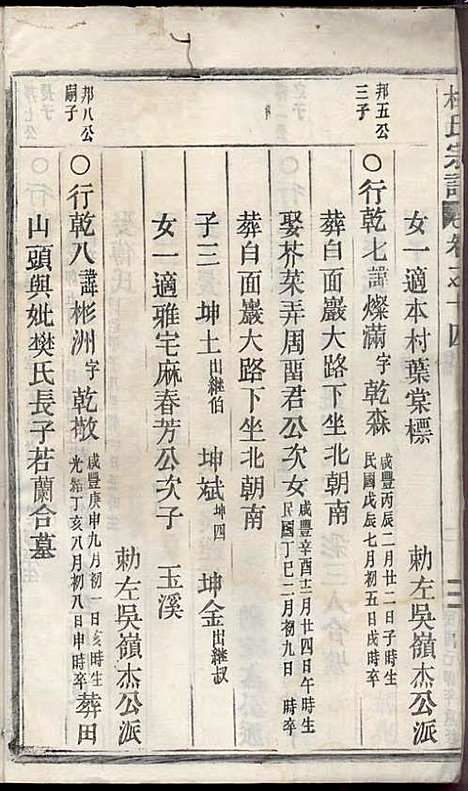 林氏宗譜
卷之十四
女一適本村葉棠標
勅左吳嶺杰公派
邦五公三子
○行乾七諱燦滿字乾森 咸豐丙辰二月廿二日子時生 民國戊辰七月初五日戌時卒
葬白面巖大路下坐北朝南
娶芥菜弄周君公次女 咸豐辛酉十二月廿四日午時生 民國丁巳二月初九日 時卒
葬白面巖大路下坐北朝南
子三 坤土出繼伯 坤斌坤四 坤金出繼叔
女一適雅宅麻春芳公次子 玉溪
勅左吳嶺杰公派
邦八公嗣子
○行乾八諱彬洲字乾敬 咸豐庚申九月初一日亥時生 光緒丁亥八月初八日申時卒 葬田
山頭與妣樊氏長子若蘭合墓